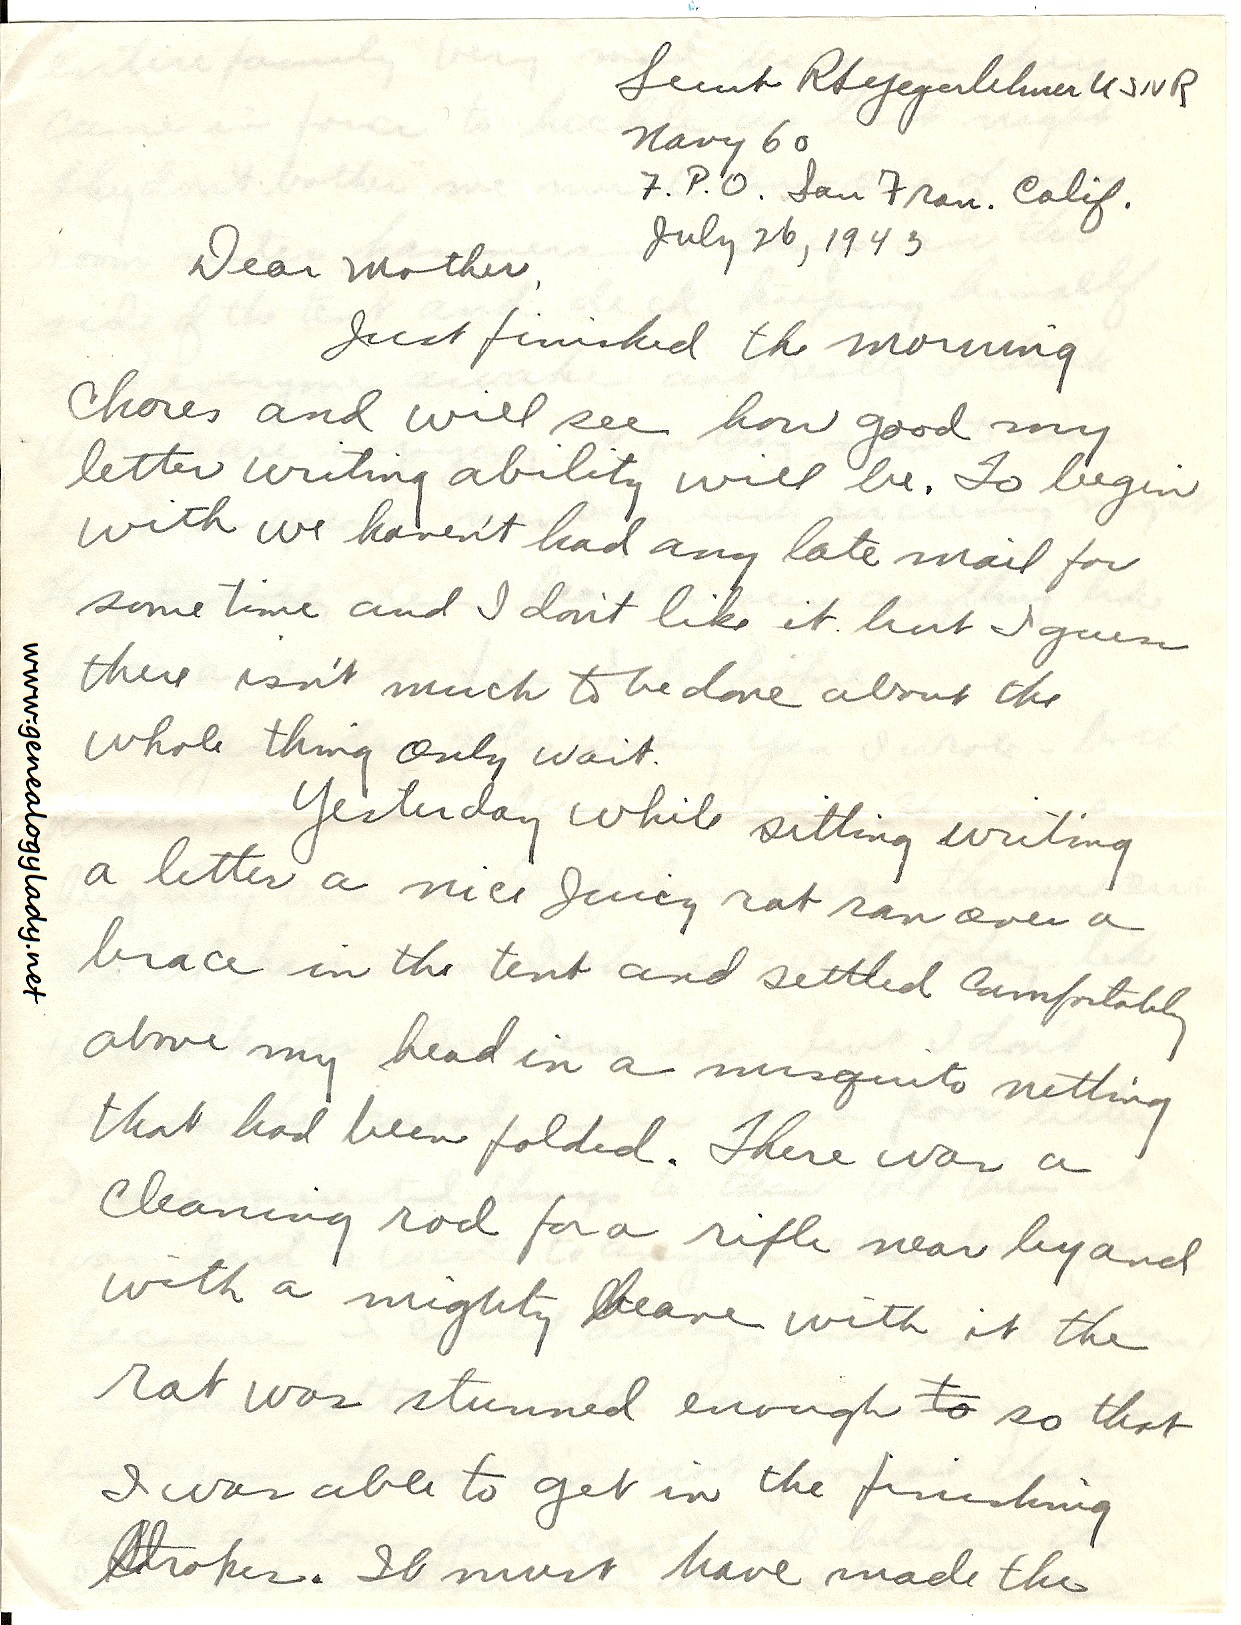 Lieut R Yegerlehner USNR
Navy 60
F.P.O. San Fran. Calif.
July 26, 1943
Dear Mother,
Just finished the morning
chores and will see how good my
letter writing ability will be. To begin
with we haven't had any late mail for
some time and I don't like it but I guess
there isn't much to be done about the
whole thing only wait.
Yesterday while sitting writing
a letter a nice juicy rat ran over a
brace in the tent and settled comfortably
above my head in a musquito netting
that had been folded. There was a
cleaning rod for a rifle near by and
with a mighty heave with it the
rat was stunned enough to so that
I was able to get in the finishing
strokes. It must have made the
www.genealogylady.net